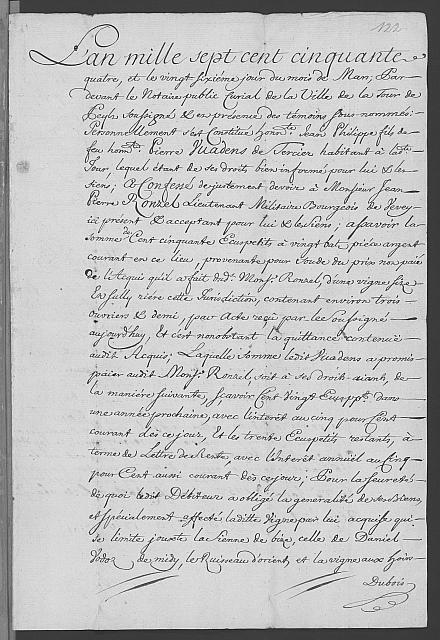 122
L'an mille sept cent cinquante
quatre, et le vingt sixiéme jour du mois de Mars; Par
devant le Notaire public Curial de la Ville de la Tour de
Peylz soussigné & en présence des témoins sous nommés:
Personnellement s'est Constitué honn. Jean Philippe fils de
feu honn. Pierre Nuadens de Tercier habitant à lad.
Tour, lequel étant de ses droits bien informé pour lui & les
siens; A Confessé de justement devoir à Monsieur Jean
Pierre Ronzel Lieutenant Militaire Bourgeois de Vevey
ici présent & acceptant pour lui & les siens; assavoir la
somme de Cent cinquante Ecuspetits à vingt bat. pièce argent
courant en ce lieu, provenante pour soude du prix non paié
de l'Acquis qu'il a fait dud. Mons. Ronzel, d'une vigne size
En sully rière cette Jurisdiction, contenant environ trois
ouvriers & demi, par Acte reçu par le soussigné
aujourdhuy, Et c'est nonobstant la quittance contenue
audit Acquis; Laquelle Somme ledit Nuadens a promis
paier audit Mons. Ronzel, soit à ses droit-aiants, de
la manière suivante, sçavoir Cent vingt Ecuspp. dans
une année prochaine, avec l'interêt au cinq pour Cent
courant dès ce jour, Et les trente Ecuspetits restants, à
terme de Lettre de Rente, avec l'Interêt annuel au Cinq
pour Cent aussi courant dès ce jour; Pour la seureté
dequoi ledit Débiteur a obligé la généralité de ses Biens,
et spécialement affecté ladite vigne par lui acquise qui
se limite jouxte la sienne de bize, celle de Daniel
de midy, le Ruisseau d'orient, et la vigne aux hoirs
Dubois